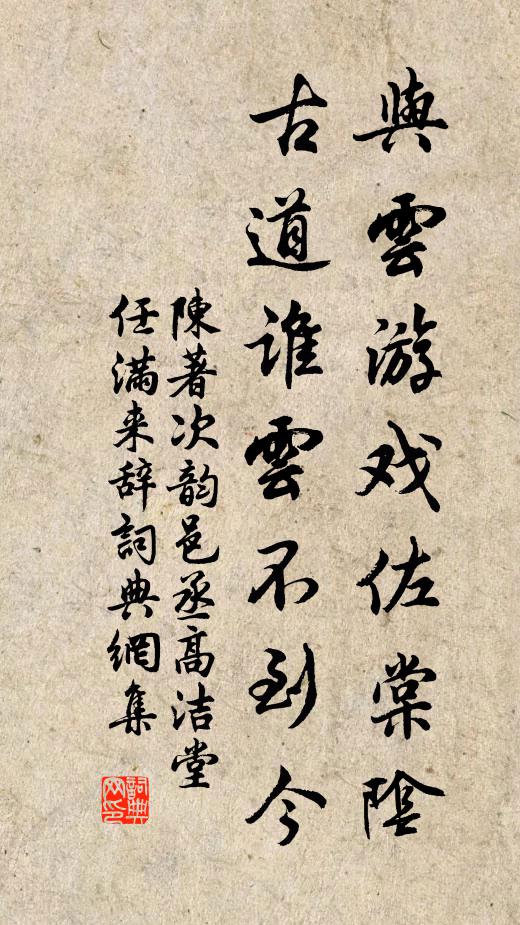 與雲游戏佐棠陰
古道谁雲不到今
陳著次韵邑丞高洁堂
任滿来辞詞典網集
詞典网印